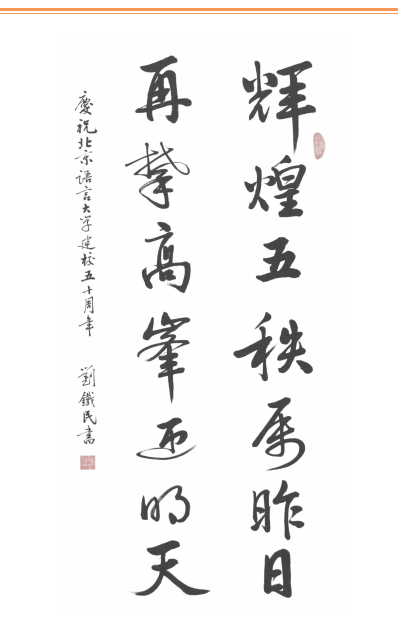 輝煌五秩属昨日
再攀高峯迎明天
慶祝北京語言大学建校五十周年 劉鐵民書